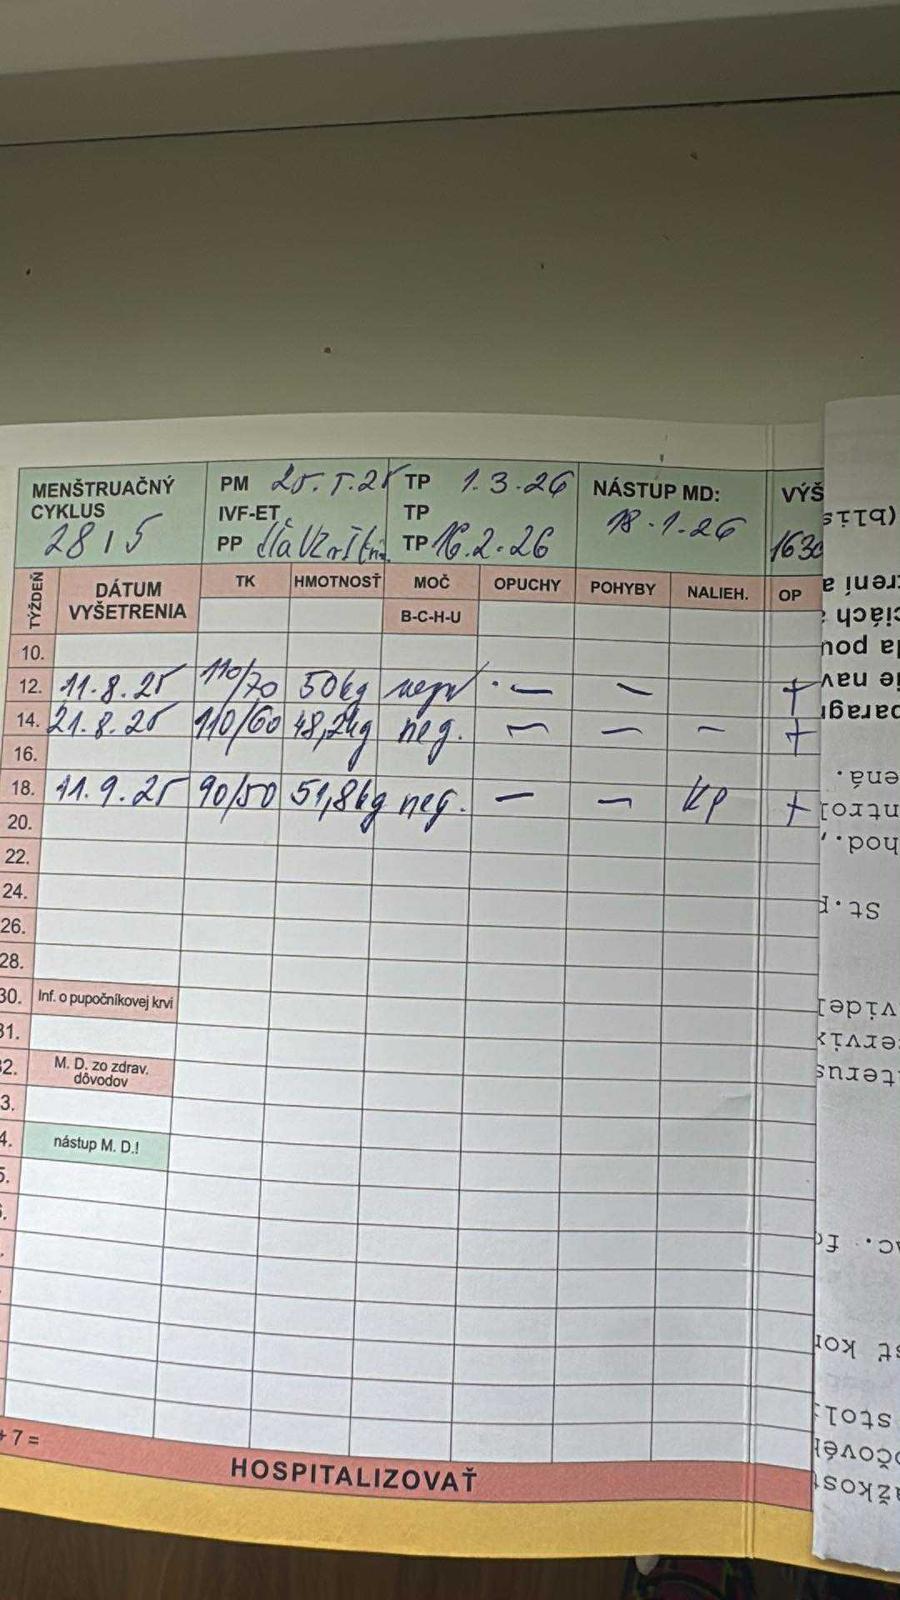 MENŠTRUAČNÝ CYKLUS 28/5
PM 25.5.25
IVF-ET
PP
TP 1.3.26
TP
TP 16.2.26
NÁSTUP MD: 18.1.26
VÝŠ
163c
TÝŽDEŇ DÁTUM VYŠETRENIA TK HMOTNOSŤ MOČ OPUCHY POHYBY NALIEH. OP
B-C-H-U
10.
12. 11.8.25 110/70 50kg — — +
14. 21.8.25 110/60 48,2kg neg. — — — +
16.
18. 11.9.25 90/50 51,8kg neg. — — KP +
20.
22.
24.
26.
28.
30. Inf. o pupočníkovej krvi
31.
32. M. D. zo zdrav. dôvodov
3.
4. nástup M. D.!
5.
+ 7 =
HOSPITALIZOVAŤ
(blis
treni a
ciách
la pou
ie nav
paragr
ená.
ntrol
hod.,
St.p
videl
ervix
terus
ac. fo
sť kor
stol
očové
ažkost